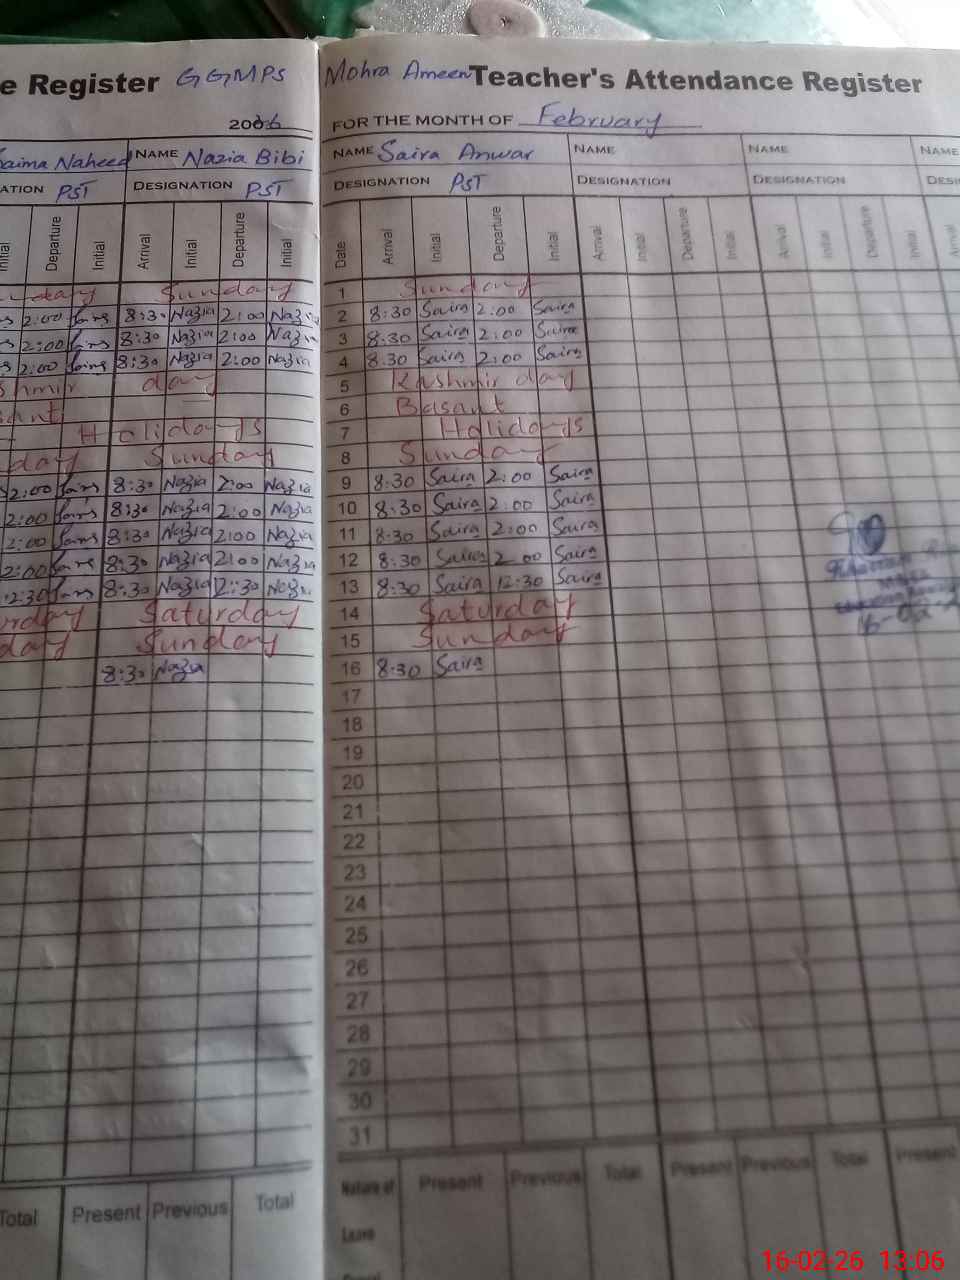 e Register GGMPS Mohra Ameen Teacher's Attendance Register
2006 FOR THE MONTH OF February
Saima Naheed NAME Nazia Bibi NAME Saira Anwar NAME NAME NAME
ATION PST DESIGNATION PST DESIGNATION PST DESIGNATION DESIGNATION
Initial Departure Initial Arrival Initial Departure Initial Date Arrival Initial Departure Initial Arrival Initial Departure Initial Arrival Initial Departure Initial
day Sunday 1 Sunday
2:00 8:30 Nazia 2:00 Nazia 2 8:30 Saira 2:00 Saira
2:00 8:30 Nazia 2:00 Nazia 3 8:30 Saira 2:00 Saira
2:00 8:30 Nazia 2:00 Nazia 4 8:30 Saira 2:00 Saira
shmir day 5 Kashmir day
sant 6 Basant
Holidays 7 Holidays
day Sunday 8 Sunday
2:00 8:30 Nazia 2:00 Nazia 9 8:30 Saira 2:00 Saira
2:00 8:30 Nazia 2:00 Nazia 10 8:30 Saira 2:00 Saira
2:00 8:30 Nazia 2:00 Nazia 11 8:30 Saira 2:00 Saira
2:00 8:30 Nazia 2:00 Nazia 12 8:30 Saira 2:00 Saira
12:30 8:30 Nazia 12:30 Nazia 13 8:30 Saira 12:30 Saira
rday Saturday 14 Saturday
day Sunday 15 Sunday
8:30 Nazia 16 8:30 Saira
17
18
19
20
21
22
23
24
25
26
27
28
29
30
31
Total Present Previous Total Nature of Leave Present Previous Total Present Previous Total Present
16-02-26 13:06